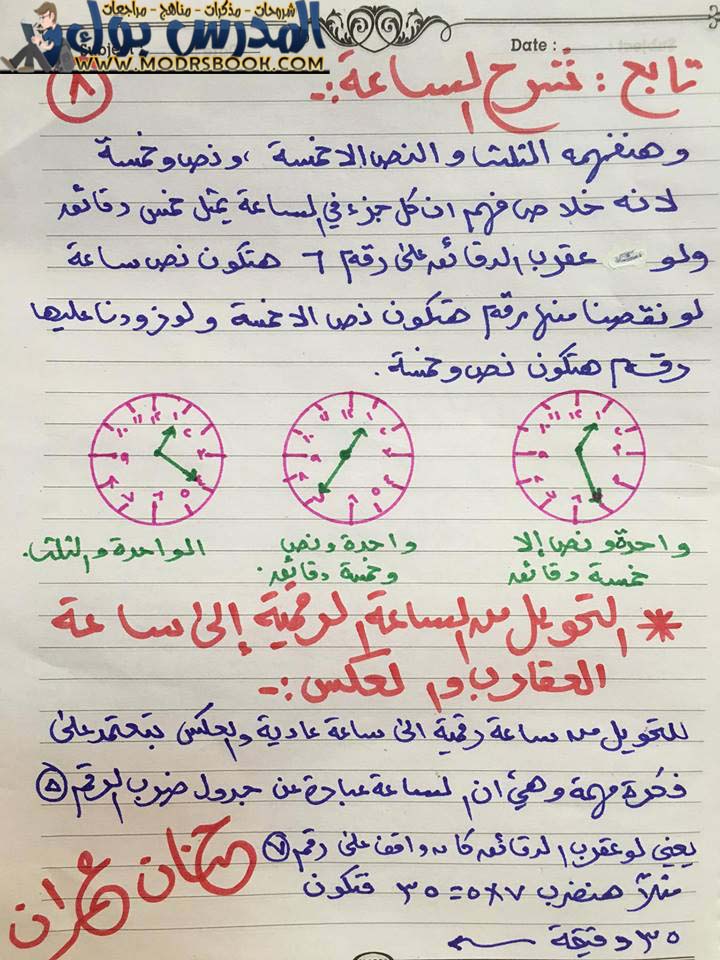 شروحات - مذكرات - مناهج - مراجعات
المدرس بوك
WWW.MODRSBOOK.COM
Subject
Date :
٨
تابع : شرح الساعة :-
وهنفهمه التلت و النص الا خمسة ، و نص و خمسة
لانه خلاص فهم ان كل جزء في الساعة يمثل خمس دقائق
ولو عقرب الدقائق على رقم ٦ هتكون نص ساعة
لو نقصنا منها رقم هتكون نص الا خمسة ولو زودنا عليها
رقم هتكون نص و خمسة .
واحدة و نص إلا
خمسة دقائق
واحدة و نص
وخمسة دقائق .
الواحدة و الثلث .
* التحويل من الساعة الرقمية إلى ساعة
العقارب و العكس :-
للتحويل من ساعة رقمية الى ساعة عادية والعكس بتعتمد على
فكرة مهمة وهي ان الساعة عبارة عن جدول ضرب الرقم ٥
يعني لو عقرب الدقائق كان واقف على رقم ٧
مثلاً هنضرب ٧×٥=٣٥ فتكون
٣٥ دقيقة
حنان عمران